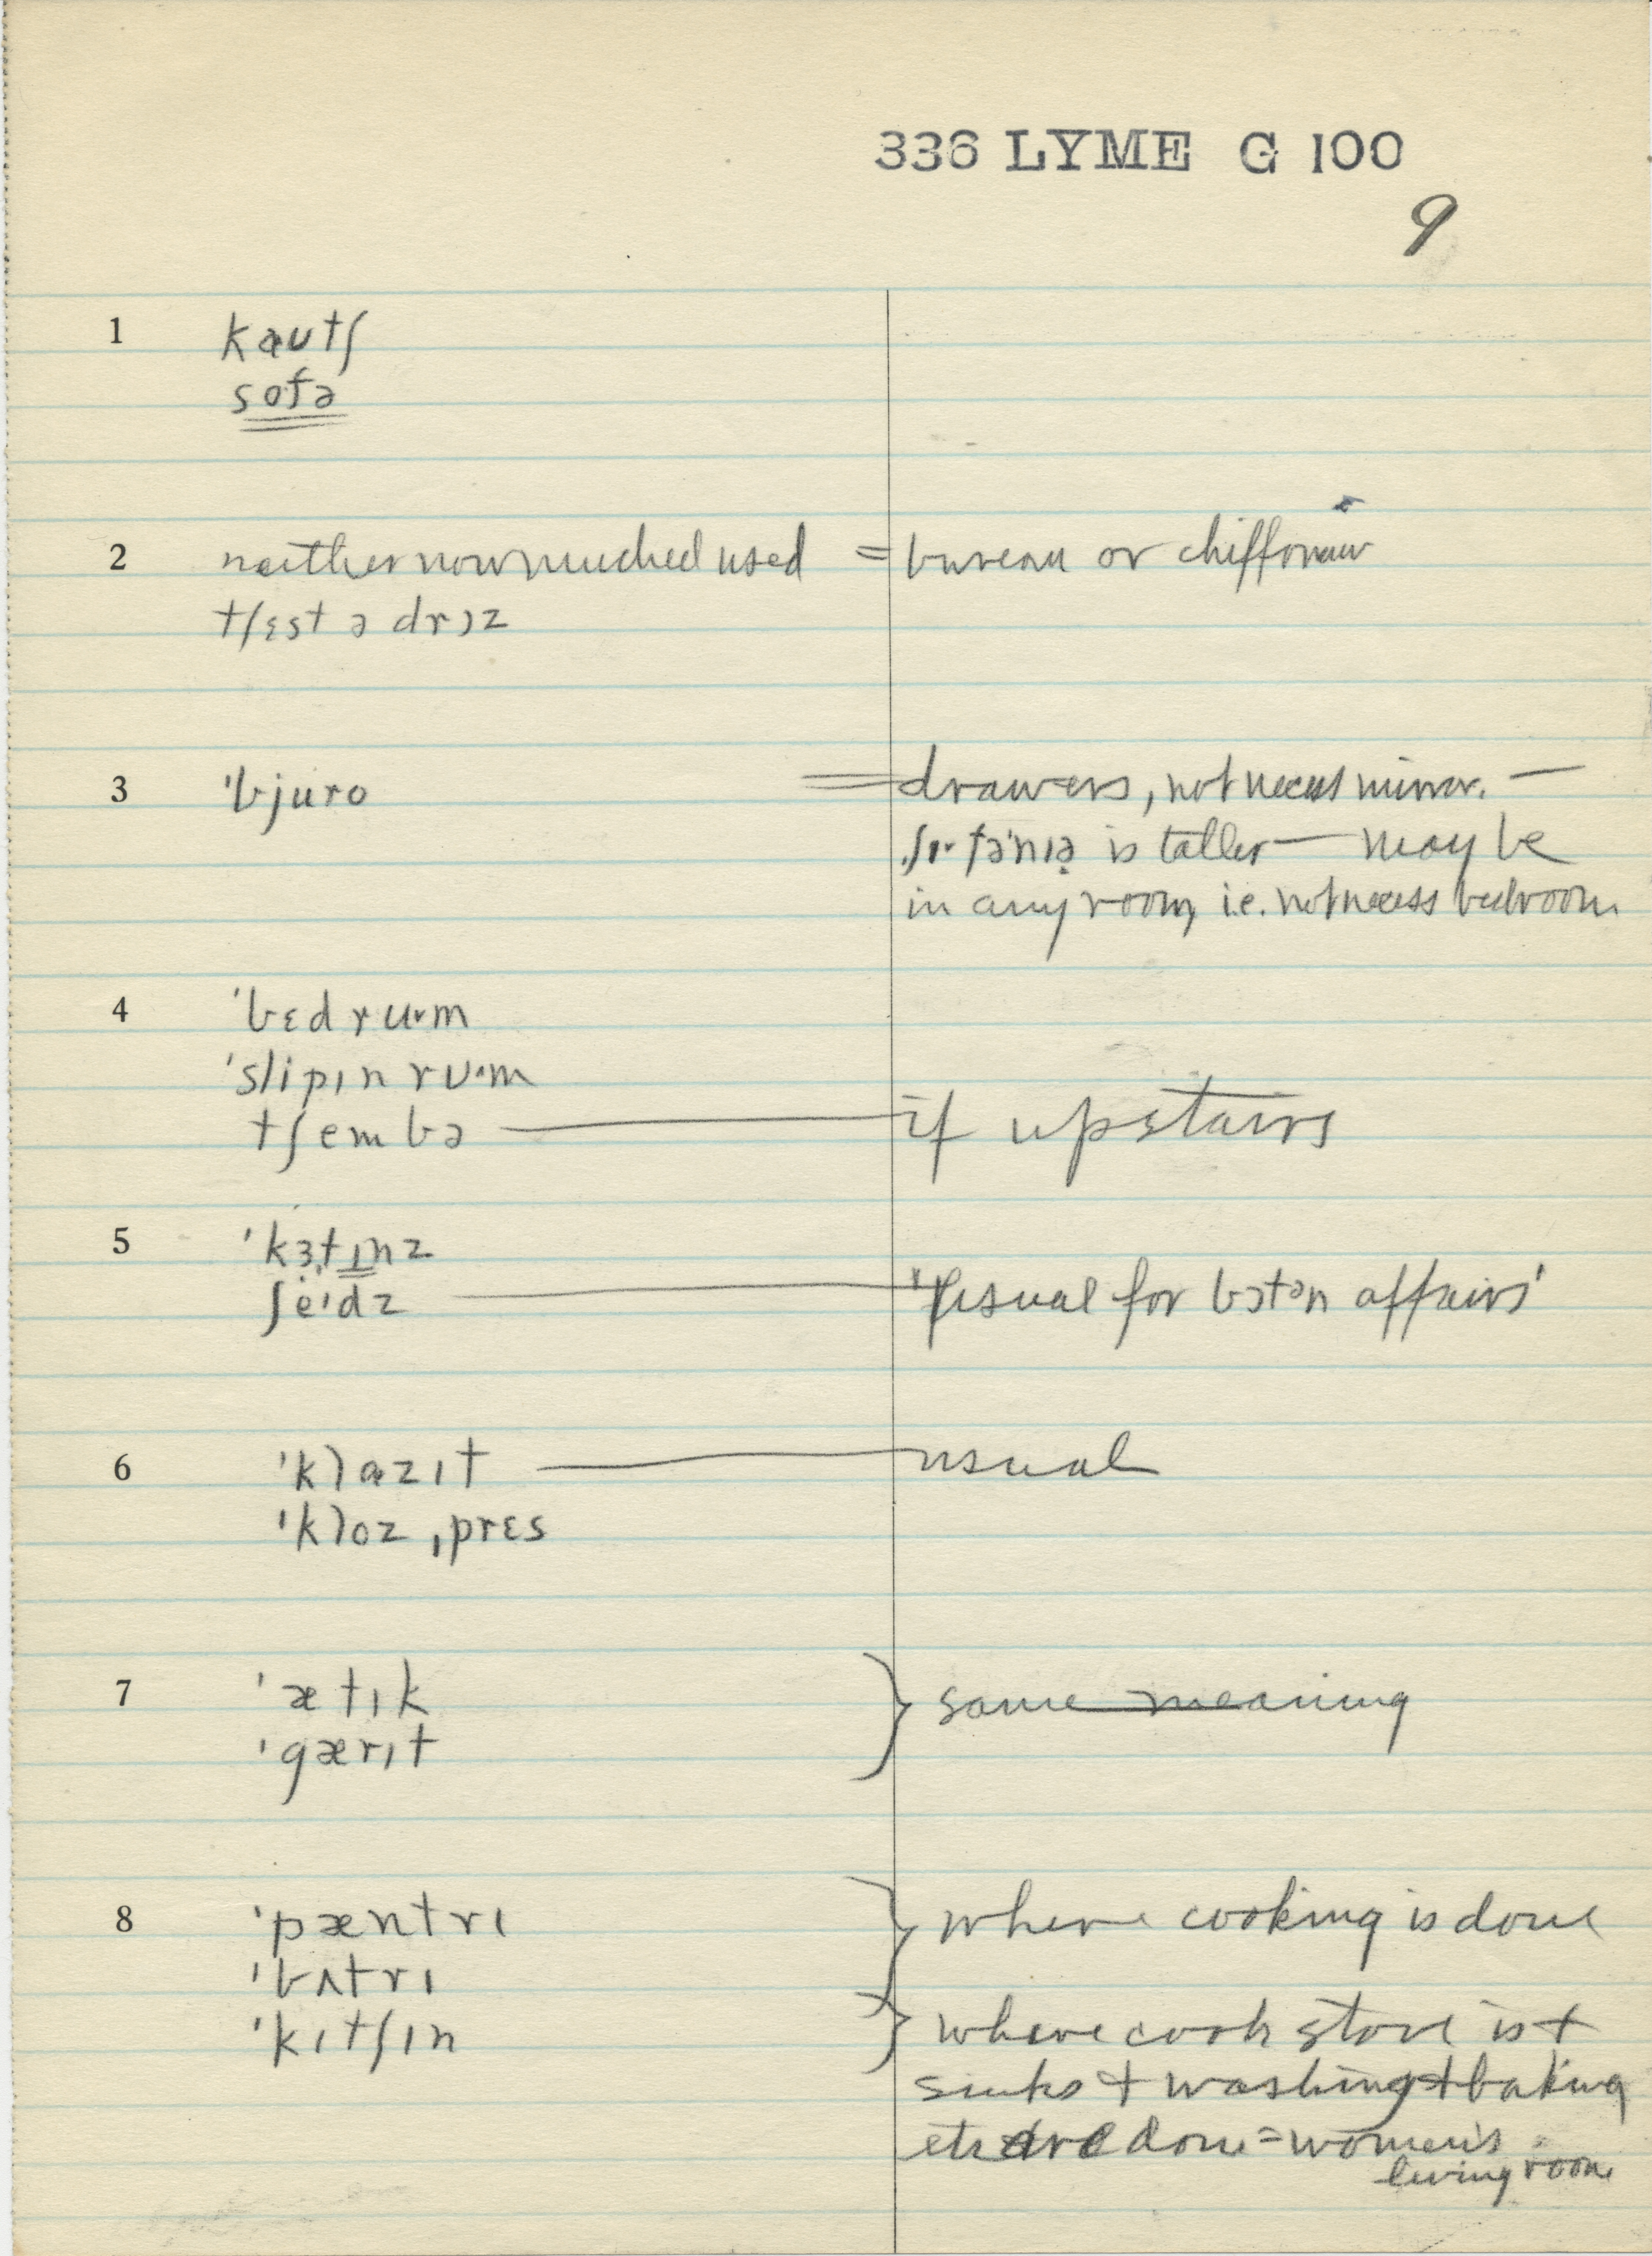 336 LYME G 100
9
1 kɑutʃ
sofə
2 neither now muched used = bureau or chiffonier
tʃɛst ə drɔz
3 ˈbjuro = drawers, not necess mirror. —
is taller — may be
in any room, i.e. not necess bedroom
4 ˈbɛdruˑm
ˈslipɪn rʊˑm
tʃembə — if upstairs
5 ˈkɜtɪnz
ʃeˑɪdz — 'usual for bɔtən affairs'
6 ˈklɑzɪt — usual
ˈkloz ˌprɛs
7 ˈætɪk } same meaning
ˈgærɪt
8 ˈpæntrɪ } where cooking is done
ˈbʌtrɪ
ˈkɪtʃɪn } where cook stove is +
sinks + washing + baking
etc are done = women's
living room